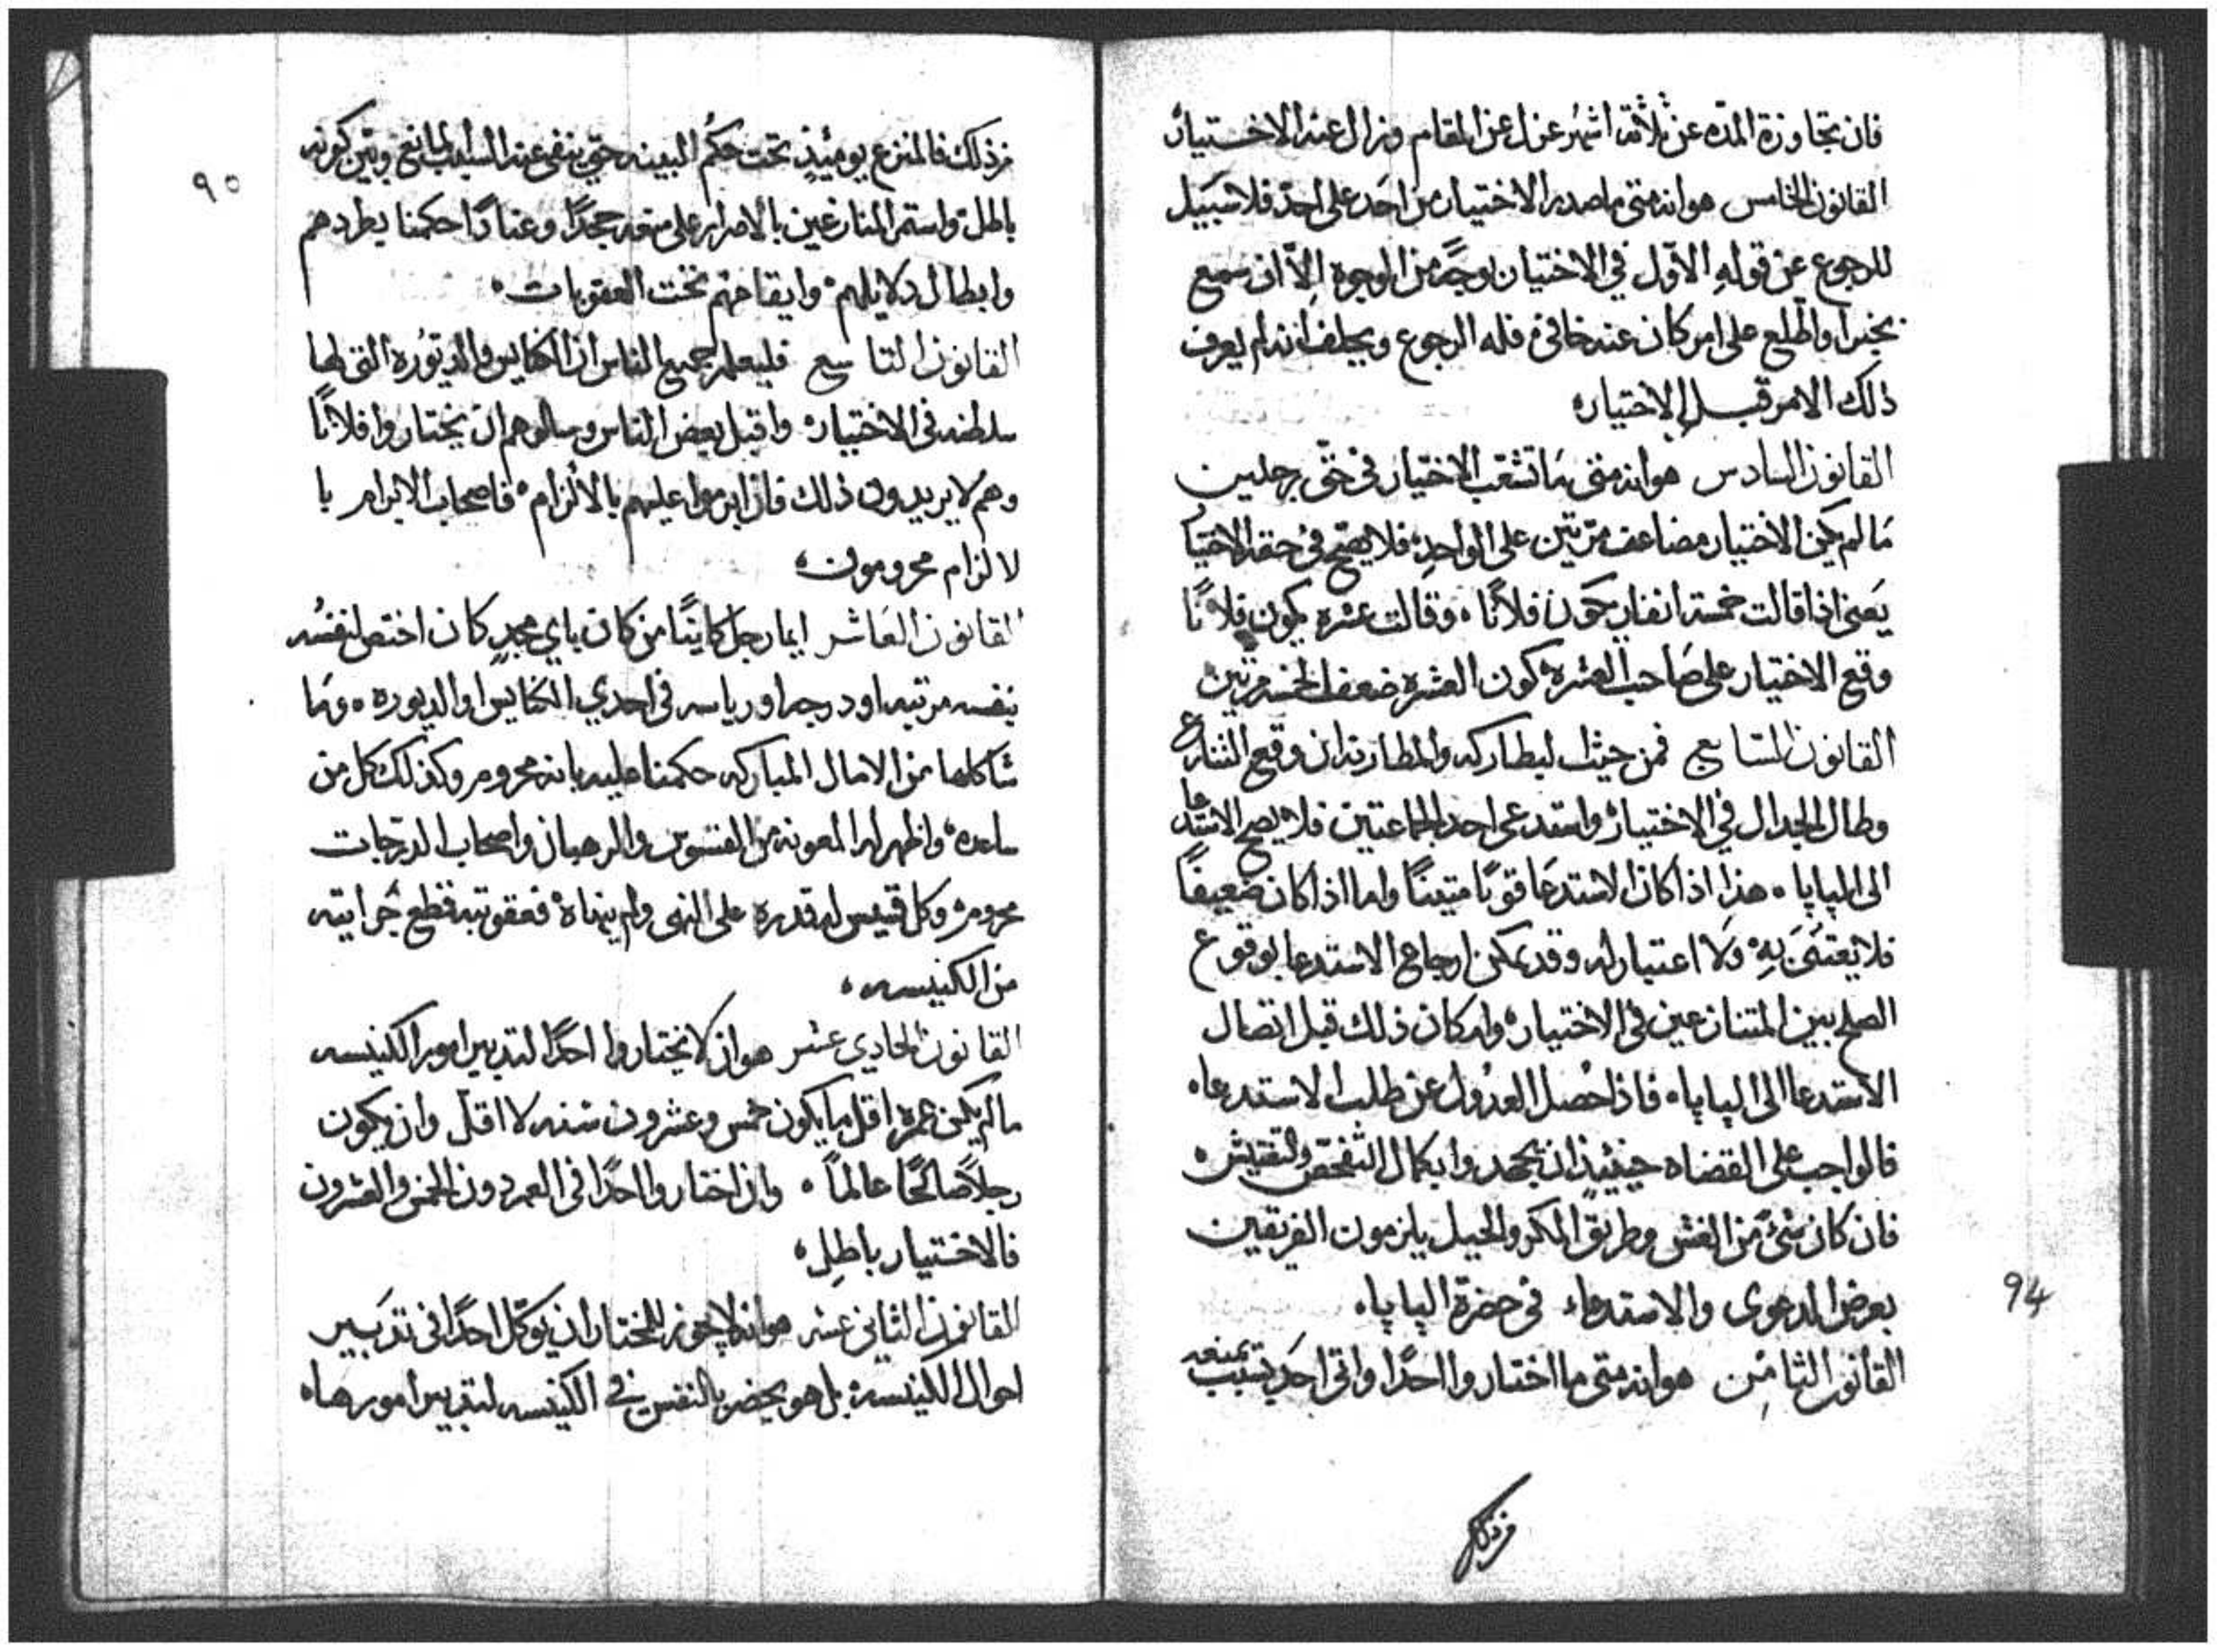 فان تجاوزة المدّه عن ثلاثة اشهُر عزل عن المقام وزال عنه الاختيار
القانون الخامس هو انه متى ما صدر الاختيار من احَد على احدٍ فلا سَبَيل
للرجوع عن قولهِ الاوّل في الاختيار بوجهٍ من الوجوه اِلاّ ان سمع
بخبر او اطّلع على امر كان عنه خافى فله الرجوع ويحلف انه لم يعرف
ذلك الامر قبل الاختيار
القانون السادس هو انه متى مَا تشعّب الاختيار في حقّ رجلين
مَا لم يكن الاختيار مضاعف مرّتين على الواحدِ فلا يصّح في حقه الاختيا
يَعنى اذا قالت خمسة انفار يكون فلانًا وقالت عشره يكون فلانًا
وقع الاختيار على صَاحب العشره كون العشره ضعف الخمسه مرتين
القانون السّابع فمن حيث البطاركه والمطارنه ان وقع التنازع
وطال الجدال في الاختيار واستدعى احد الجماعتين فلا يصح الاستدعا
الى البابا هذا اذا كان الاستدعَا قويًا متينًا واما اذا كان ضعيفًا
فلا يعتنَىَ بهِ وَلا اعتبار له وقد يمكن ارجاع الاستدعا بوقوع
الصلح بين المتنازعين في الاختيار وان كان ذلك قبل اتصال
الاستدعا الى البابا فاذا حُصل العدُول عن طلب الاستدعا
فالواجب على القضاه حينيئذٍ ان يجهدوا بكمال التفحّص والتفتيش
فان كان شئ من الغش وطريق المكر والحيل يلزمون الفريقين
بعرض الدعوى والاستدعاء في حضرة البابا
القانون الثامن هو انه متى ما اختاروا احدًا واتى احَد يتسبب بمنعه
من ذلك
94
٩٥
من ذلك فالمنع يوميئذٍ تحت حكُم البينه حتي ينفى عنه السبب المانع وتبّين كونه
باطل واستمر المنازعين بالاصرار على منعه جحدًا وعنادًا حكمنا بطردهم
وابطال دلايلهم وايقاحهم تحت العقوبات
القانون التاسع فليعلم جميع الناس ان الكنايس والديُورة التى لها
سلطنه في الاختيار واقبل بعض الناس وسالوهم ان يختاروا فلانًا
وهم لا يريدون ذلك فان ابرموا عليهم بالالزام فاصحاب الابرام با
لالزام محرومون
القانون العَاشر ايما رجل كاينًا من كان باي مجدٍ كان اختص لنفسُه
بنفسه مرتبه او درجه او رياسه في احدي الكنايس او الديوره ومَا
شاكلها من الامال المباركه حكمنا عليه بانه محروم وكذلك كل من
ساعده واظهر له المعونه من القسّوس والرهبان واصحاب الدرجات
محروم وكل قسيس له قدره على النهى ولم ينهاهُ فعقوبته قطع جُرايته
من الكنيسه
القانون الحادي عشر هو ان لا يختاروا احدًا لتدبير امور الكنيسه
ما لم يكن عمرهُ اقل ما يكون خمس وعشرون سنه لا اقلّ وان يكون
رجلاً صالحًا عالمًا وان اختاروا احدًا في العمر دون الخمس والعشرون
فالاختيار باطِل
القانون الثاني عشر هو انه لا يجوز للمختار ان يوكّل احدًا في تدبَير
احوال الكنيسه بل هو يحضر بالنفس في الكنيسه لتدبير امورها